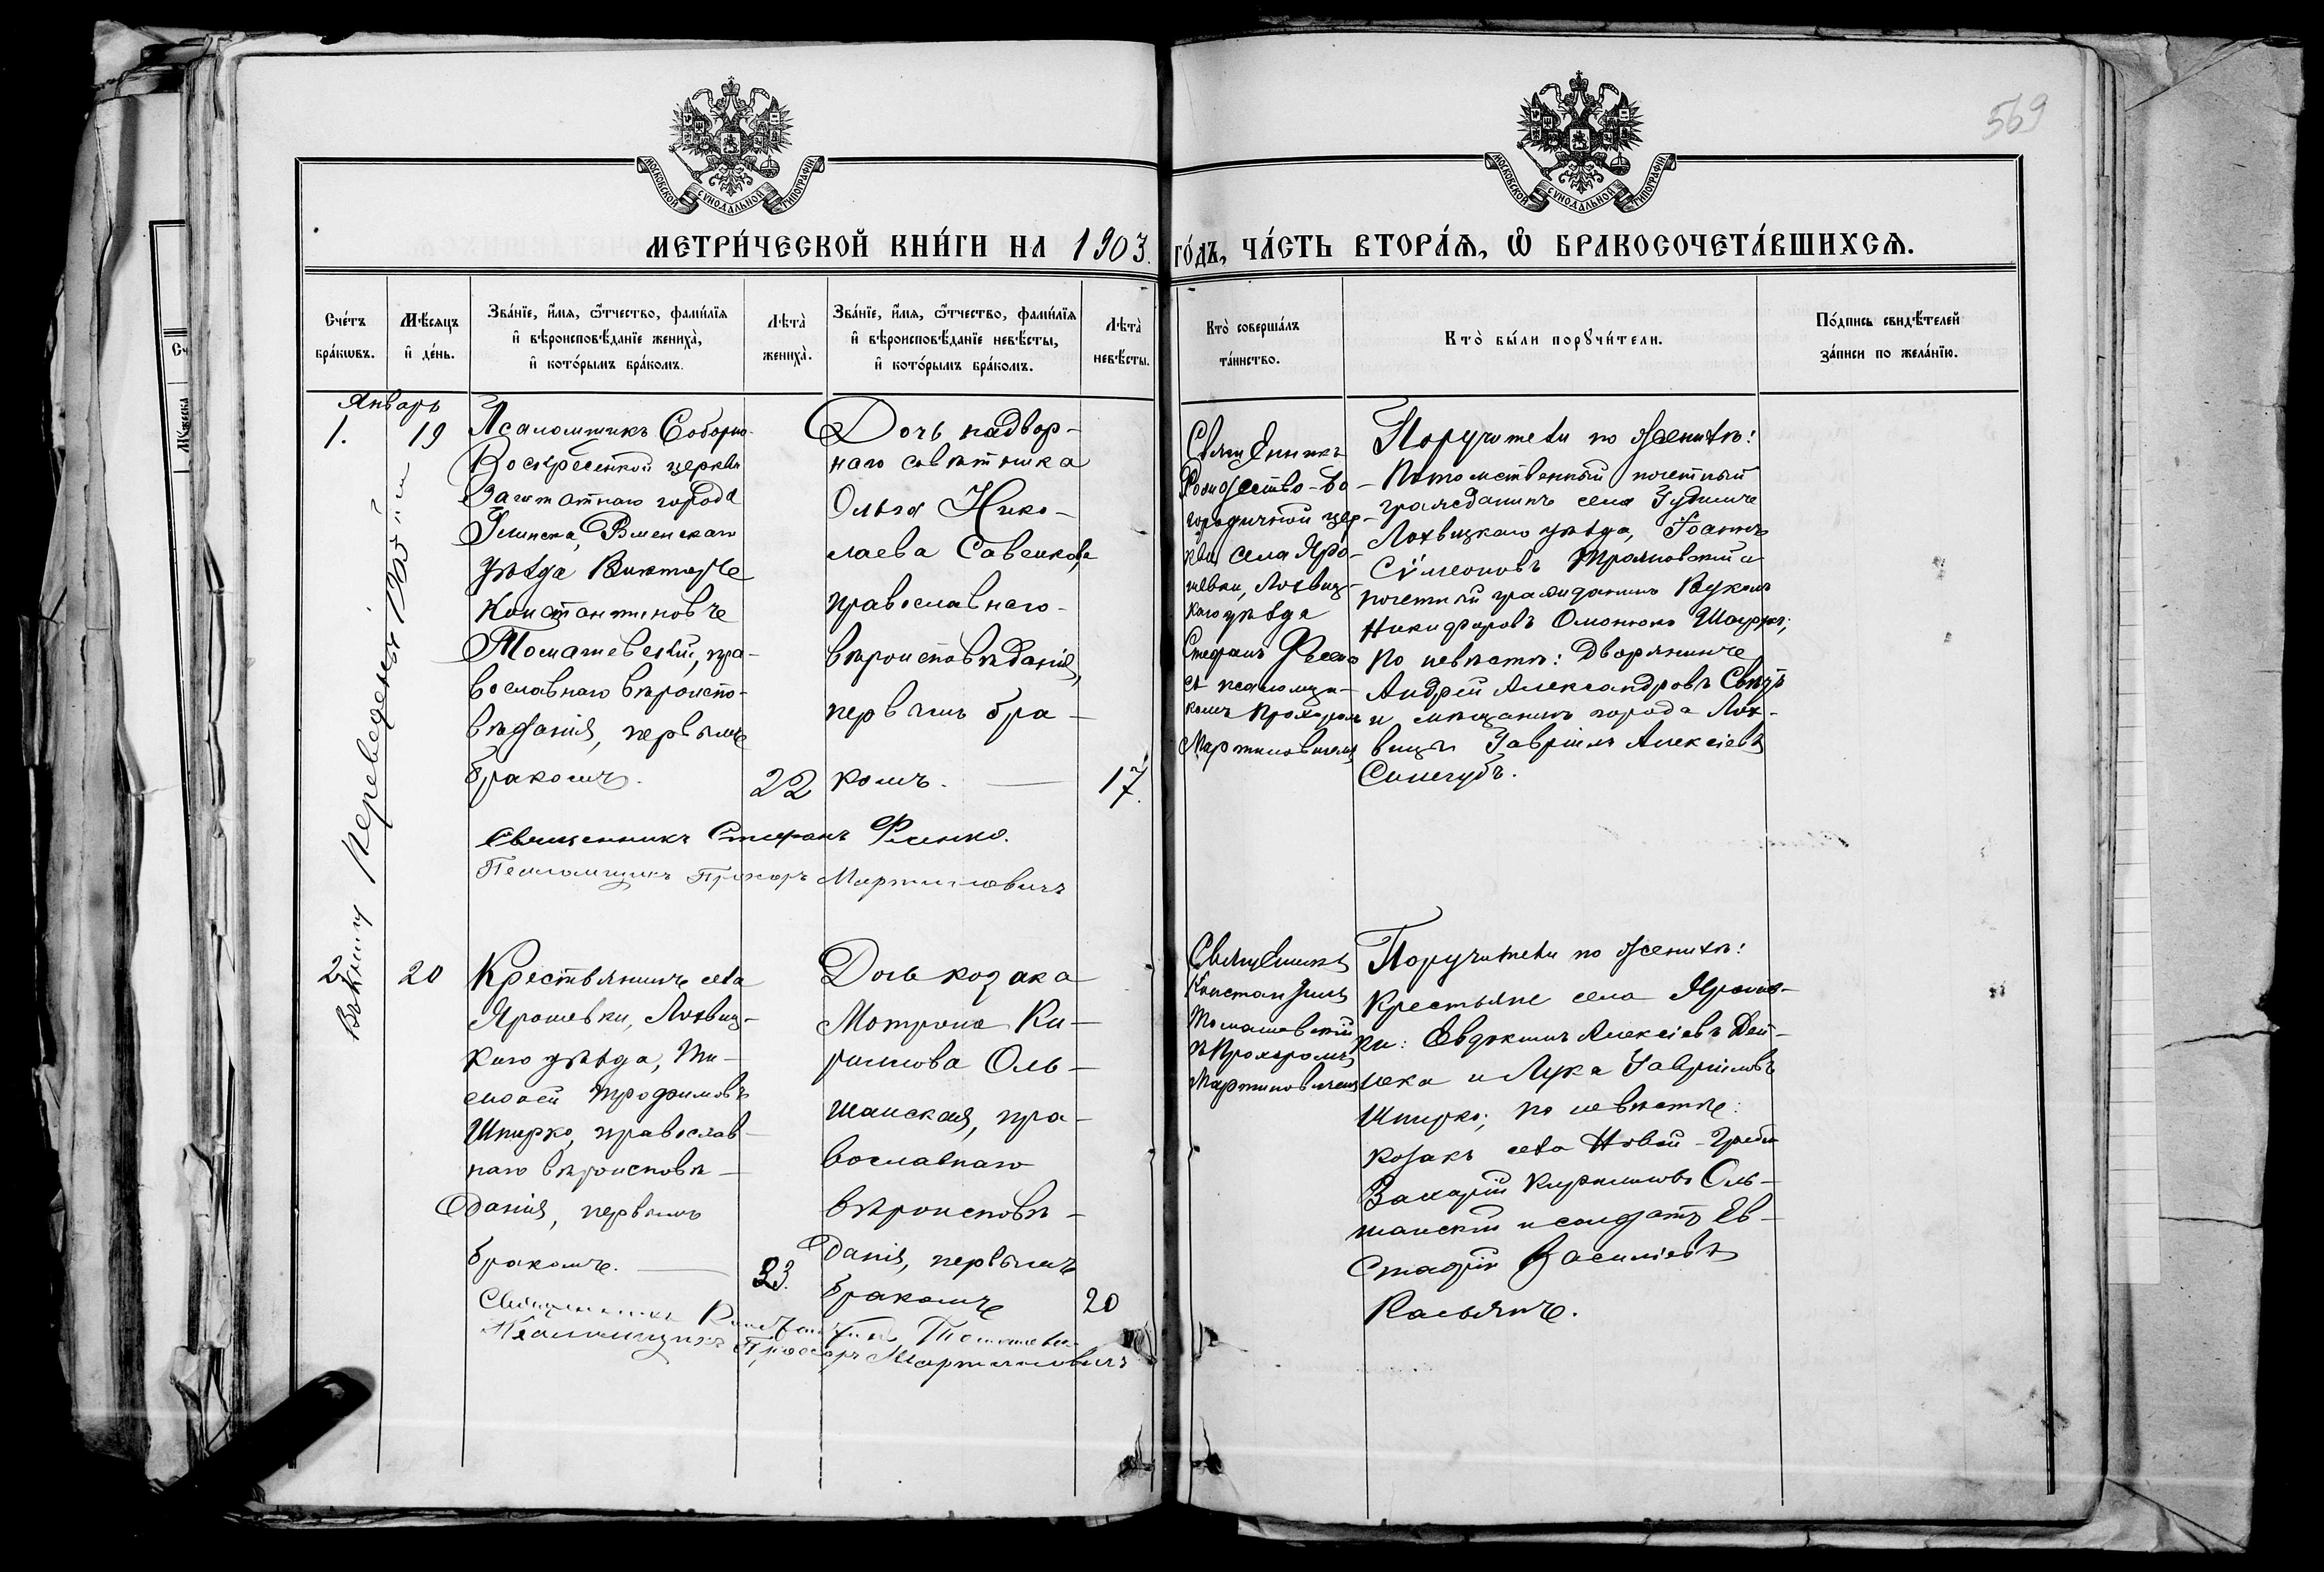 569
МОСКОВСКОЙ СѴНОДАЛЬНОЙ ТИПОГРАФІИ
МОСКОВСКОЙ СѴНОДАЛЬНОЙ ТИПОГРАФІИ
МЕТРИ́ЧЕСКОЙ КНИ́ГИ НА 1903. ГО́ДЪ, ЧА́СТЬ ВТОРА́Ѧ, Ѽ БРАКОСОЧЕТА́ВШИХСѦ.
Сче́тъ
бра́кѡвъ.
Мѣ́сяцъ
и҆ де́нь.
Зва́нїе, и҆́мя, ѻ҆́тчество, фами́лїя
и҆ вѣроисповѣ́данїе жениха̀,
и҆ кото́рымъ бра́комъ.
Лѣ́та̀
жениха̀.
Зва́нїе, и҆́мя, ѻ҆́тчество, фами́лїя
и҆ вѣроисповѣ́данїе невѣ́сты,
и҆ кото́рымъ бра́комъ.
Лѣ́та̀
невѣ́сты.
Кто̀ соверша́лъ
та́инство.
Кто̀ бы́ли порꙋчи́тели.
По́дпись свидѣ́телей
за́писи по жела́нїю.
Январь
1.
19
Псаломщикъ Соборно-
Воскресенской церкви
Заштатнаго города
Глинска, Роменскаго
уѣзда Викторъ
Константиновъ
Томашевскій, пра-
вославнаго вѣроиспо-
вѣданія, первымъ
бракомъ.
22
Дочь надвор-
наго совѣтника
Ольга Нико-
лаева Савенкова,
православнаго
вѣроисповѣданія,
первымъ бра-
комъ.
17.
Священникъ
Рождество-Бо-
городичной цер-
кви села Яро-
шевки, Лохвиц-
каго уѣзда
Стефанъ Ѳеенко
съ псаломщи-
комъ Прохоромъ
Мартиновичемъ
Поручители по женихѣ:
Потомственный почетный
гражданинъ села
Лохвицкаго уѣзда, Іоаннъ
Сѵмеоновъ и
почетный гражданинъ
Никифоровъ
по невѣстѣ: Дворянинъ
Андрей Александровъ
и мѣщанинъ города Лох-
вицы Гавріилъ Алексіевъ
Синегубъ.
Священникъ Стефанъ
Псаломщикъ Прохоръ Мартиновичъ
2.
20
Крестьянинъ села
Ярошевки, Лохвиц-
каго уѣзда, Ти-
моѳей Трофимовъ
Шпирко, православ-
наго вѣроисповѣ-
данія, первымъ
бракомъ.
23.
Дочь козака
Мотрона Ки-
рилова Оль-
шанская, пра-
вославнаго
вѣроисповѣ-
данія, первымъ
бракомъ
20
Священникъ
Константинъ
Томашевскій
съ Прохоромъ
Мартиновичемъ
Поручители по женихѣ:
Крестьяне села Ярошев-
ки: Евдокимъ Алексіевъ Дей-
нека и Лука Гавріиловъ
Шпирко; по невѣстѣ:
козакъ села Новой-Гребли
Захарій Кириловъ Оль-
шанскій и солдатъ Ев-
стафій Василіевъ
Касьянъ.
Священникъ Константинъ
Псаломщикъ Прохоръ Мартиновичъ